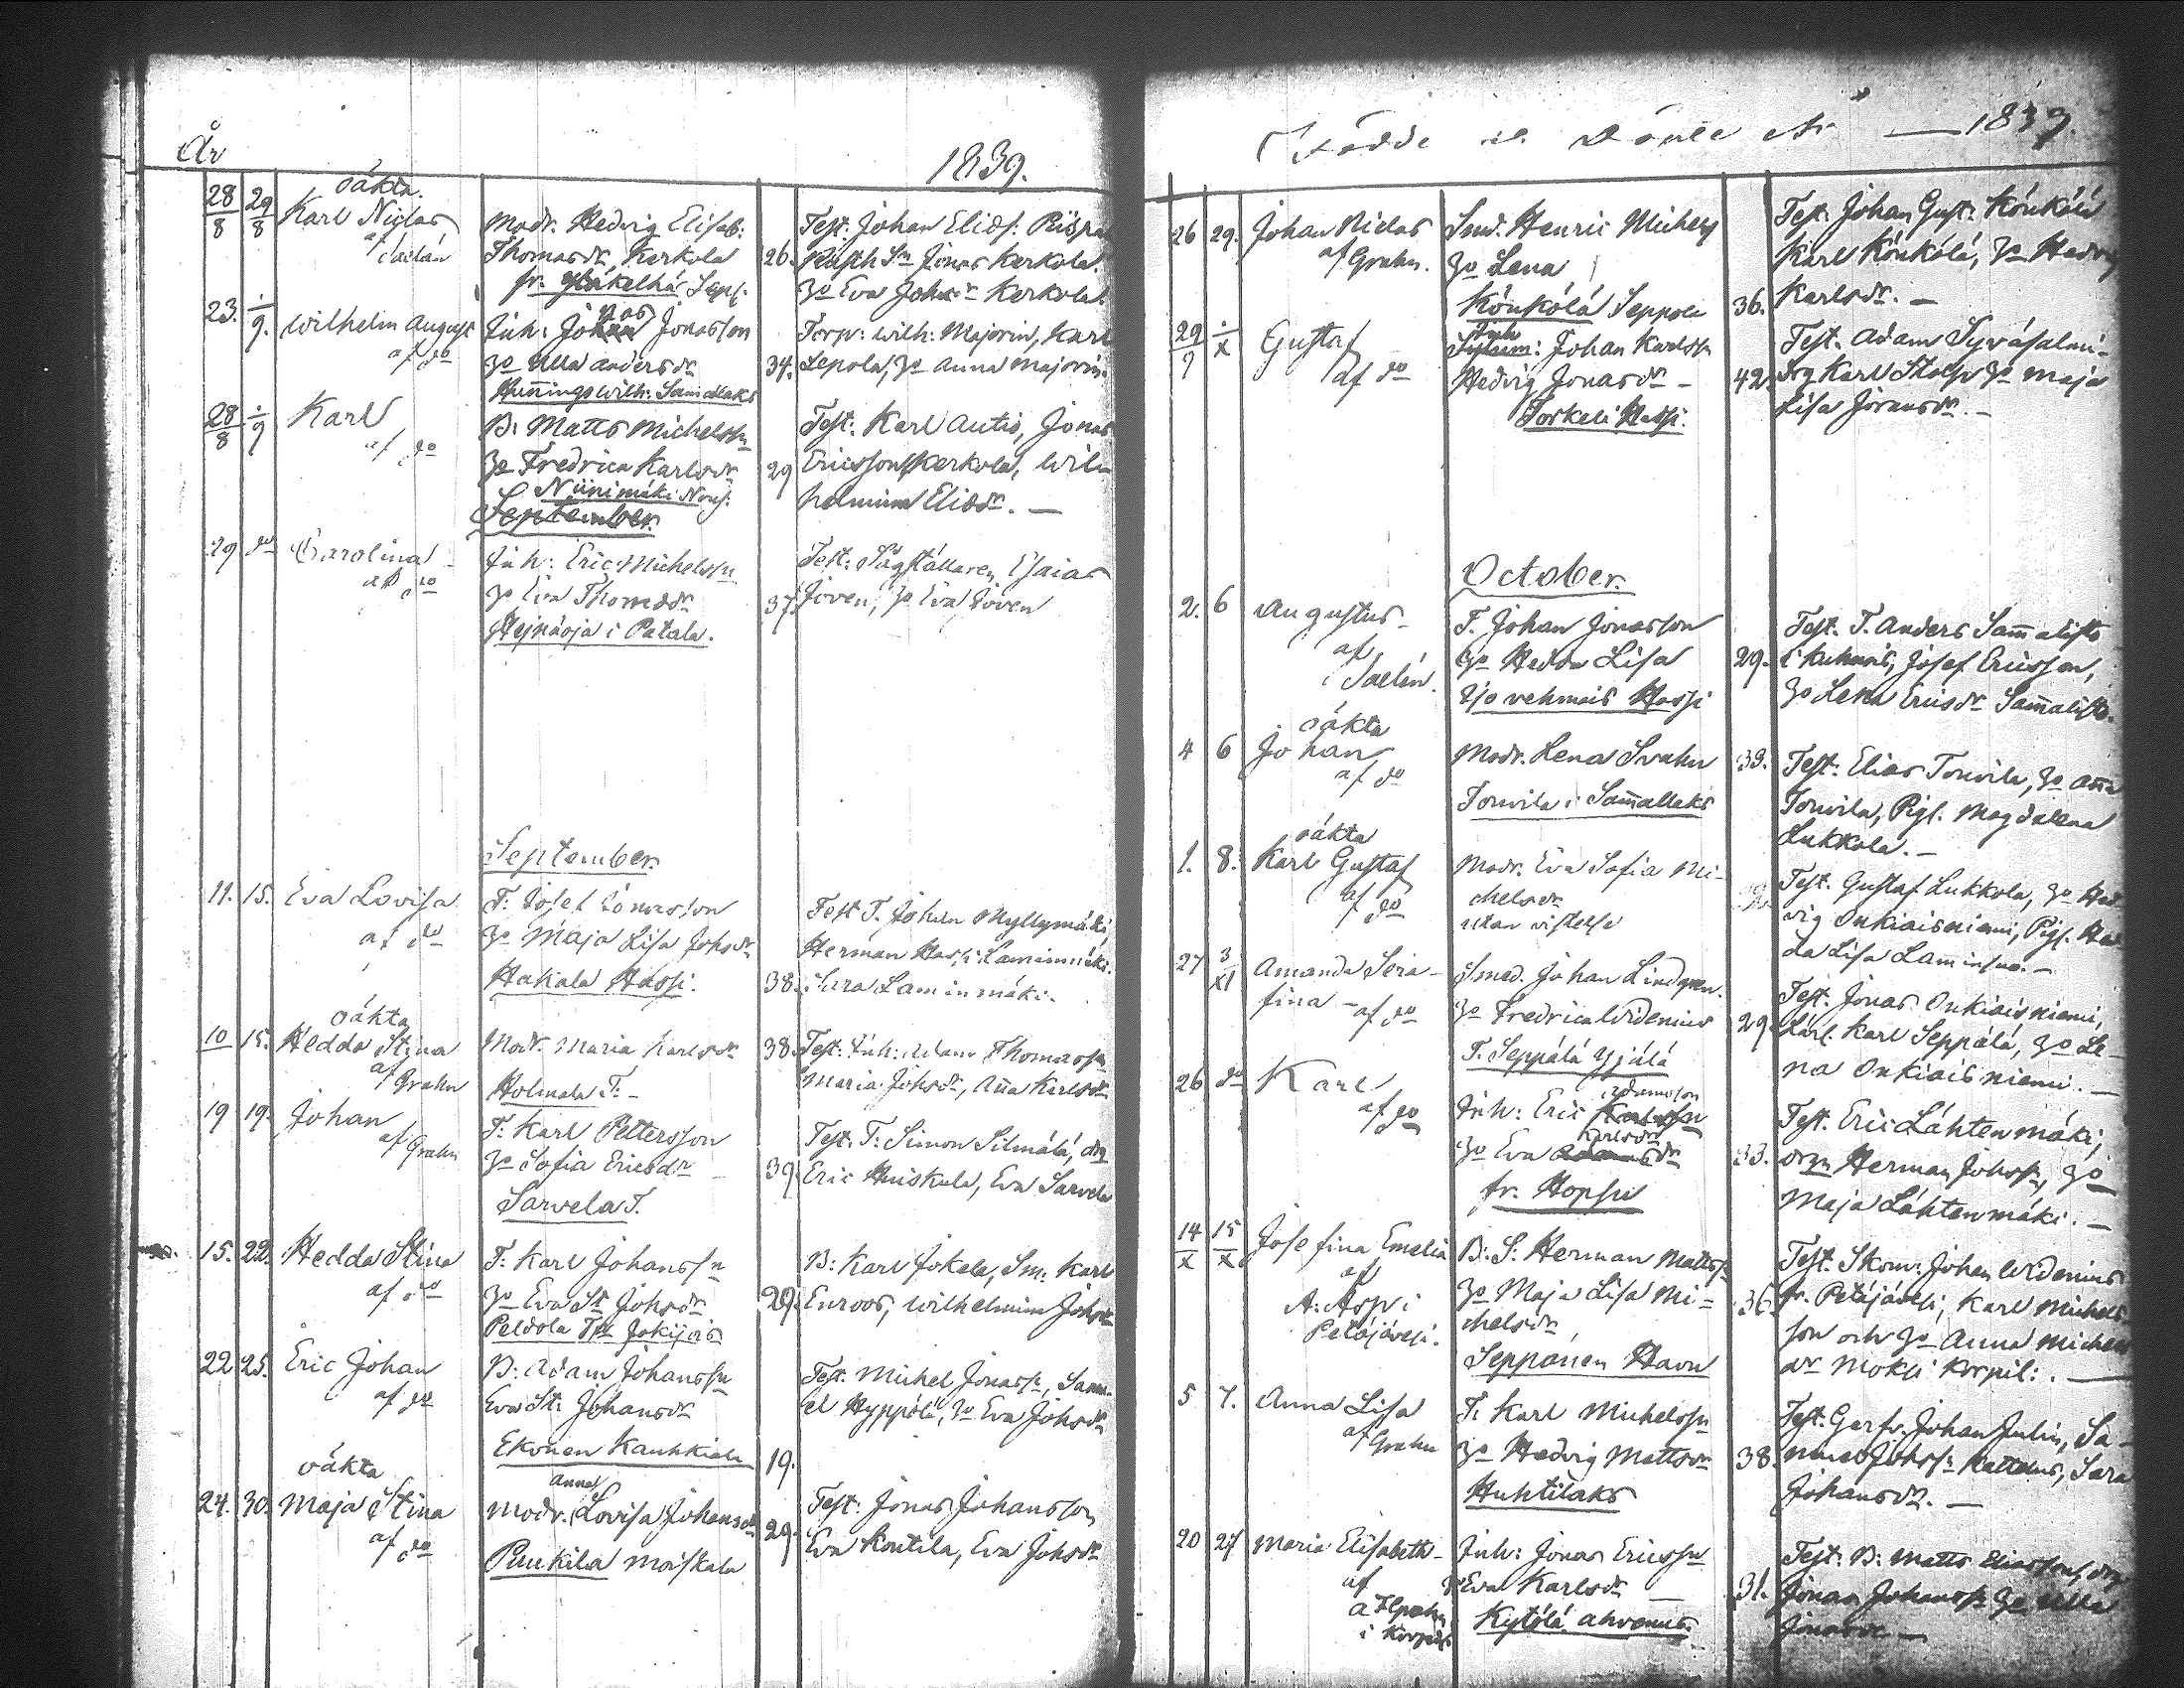 År 1839.
28/8 29/8 oäkta.
Karl Niclas
af Saelán
Modr. Hedvig Elisab:
Thomasdr Kerkola
fr. Sepp.
26.
Test. Johan Elids:
Jonas Kerkola.
Eva Johsdr Kerkola.
23. ÷/9. Wilhelm August
af do
Inh: Jonas Jonasson
Ho Ulla Andersdr
Hennings Wilh: Sammallaks
34.
Torp: Wilh: Majorin, Karl
Lepola, Ho Anna Majorin.
28/8 ÷/9 Karl
af do
B: Matts Michelssn
Ho Fredrica Karlsdr
Niinimäki Nous.
September
29
Test: Karl Autio, Jonas
Ericsson Kerkola, Wil-
helmina Eliedr. —
29 do Carolina
af do
Inh: Eric Michelssn
Ho Eva Thomsdr
Hejnäoja i Patala.
37.
Test: Sågställaren Esaias
Joven, Ho Eva Joven
September.
11. 15. Eva Lovisa
af do
T: Josef Jonasson
Ho Maja Lisa Johsdr
Hakala Hassi.
38.
Test T. Johan Myllymäki
Herman Hassi Laminmäki.
Sara Laminmäki.
10 15. oäkta
Hedda Stina
af Grahn
Modr. Maria Karlsdr
Holmala T: —
38.
Test: Inh: Adam Thomassn
Maria Johsdr, Aña Karlsdr
19 19. Johan
af Grahn
T: Karl Pettersson
Ho Sofia Ericsdr
Sarvela T.
39
Test. T: Simon Silmälä, drg
Eric Huiskula, Eva Sarvela
15. 22. Hedda Stina
af do
T: Karl Johanssn
Ho Eva St Johsdr
Peldola Tpr Jokijois
29.
B: Karl Jokela, Sm: Karl
Enroos, Wilhelmina Johsdr
22 25. Eric Johan
af do
B: Adam Johanssn
Eva St: Johansdr
Ekonen Kauhkiala
19.
Test. Michel Jonassn, Samu-
el Hyppölä, Ho Eva Johsdr
24. 30. oäkta
Maja Stina
af do
Anna
Modr. Lovisa Johansdr
Puukila Moiskala
29.
Test: Jonas Johansson
Eva Kontila, Eva Johsdr
Födde och Döpte År — 1839.
26 29. Johan Niclas
af Grahn.
Smd. Henric Michelss
Ho Lena
Könkölä Seppola
36.
Test: Johan Gust: Könkölä
Karl Könkölä, Ho Hedvig
Karlsdr. —
29/9 ÷/X Gustaf
af do
Inh: Johan Karlssn
Hedvig Jonasdr —
Torkeli Hassi.
42.
Test. Adam Syväsalmi
drg Karl Ho Maja
Lisa Göransdr. —
October.
2. 6 Augustus
af
Saelén.
T. Johan Jonasson
Ho Hedda Lisa
Ylövehmais Hassi
29.
Test. T. Anders Sam̄alisto
i Kuhmois, Josef Ericsson,
Ho Lena Ericsdr Sam̄alisto.
4 6 oäkta
Johan
af do
Modr. Lena Svahn
Torvila i Sam̄allaks
39.
Test: Elias Torvila, Ho Aña
Torvila, Pigl. Magdalena
Lukkola. —
1. 8. oäkta
Karl Gustaf
af do
Modr. Eva Sofia Mi-
chelsdr
utan vistelse
Test. Gustaf Lukkola, Ho Hed-
vig Onkiaisniemi, Pigl. Hed-
da Lisa Laminsuo. —
27 3/XI Amanda Sera-
fina — af do
Smed. Johan Lindqven.
Ho Fredrica Widenius
T. Seppälä Yjälä
29
Test. Jonas Onkiaisniemi,
Lärl. Karl Seppälä, Ho Le-
na Onkiaisniemi. —
26 do Karl
af do
Adamsson
Inh: Eric Karlssn
Karlsdr
Ho Eva Adamsdr
fr. Hopsu
33.
Test. Eric Lähtenmäki,
drgn Herman Johssn, Ho
Maja Lähtenmäki. —
14/X 15/X Josefina Emelia
af
A: Asp i
Petäjävesi.
B: S: Herman Mattssn
Ho Maja Lisa Mi-
chelsdr
Seppänen Havu
36.
Test. Skom: Johan Widenius
fr. Petäjävesi, Karl Michels
son och Ho Anna Michels
dr Mokli Korpil:. —
5 7. Anna Lisa
af Grahn
T. Karl Michelssn
Ho Hedvig Mattsdr
Huhtilaks
38.
Test: Garfv. Johan Julin, Sa-
muel Johssn Kattelus, Sara
Johansdr. —
20 27 Maria Elisabeth
af
i Korpil.
Inh: Jonas Ericssn
Ho Eva Karlsdr —
Kytölä Ahvenus.
31.
Test: B: Matts Eliasson, drg
Jonas Johanssn Ho Ulla
Jonasdr —